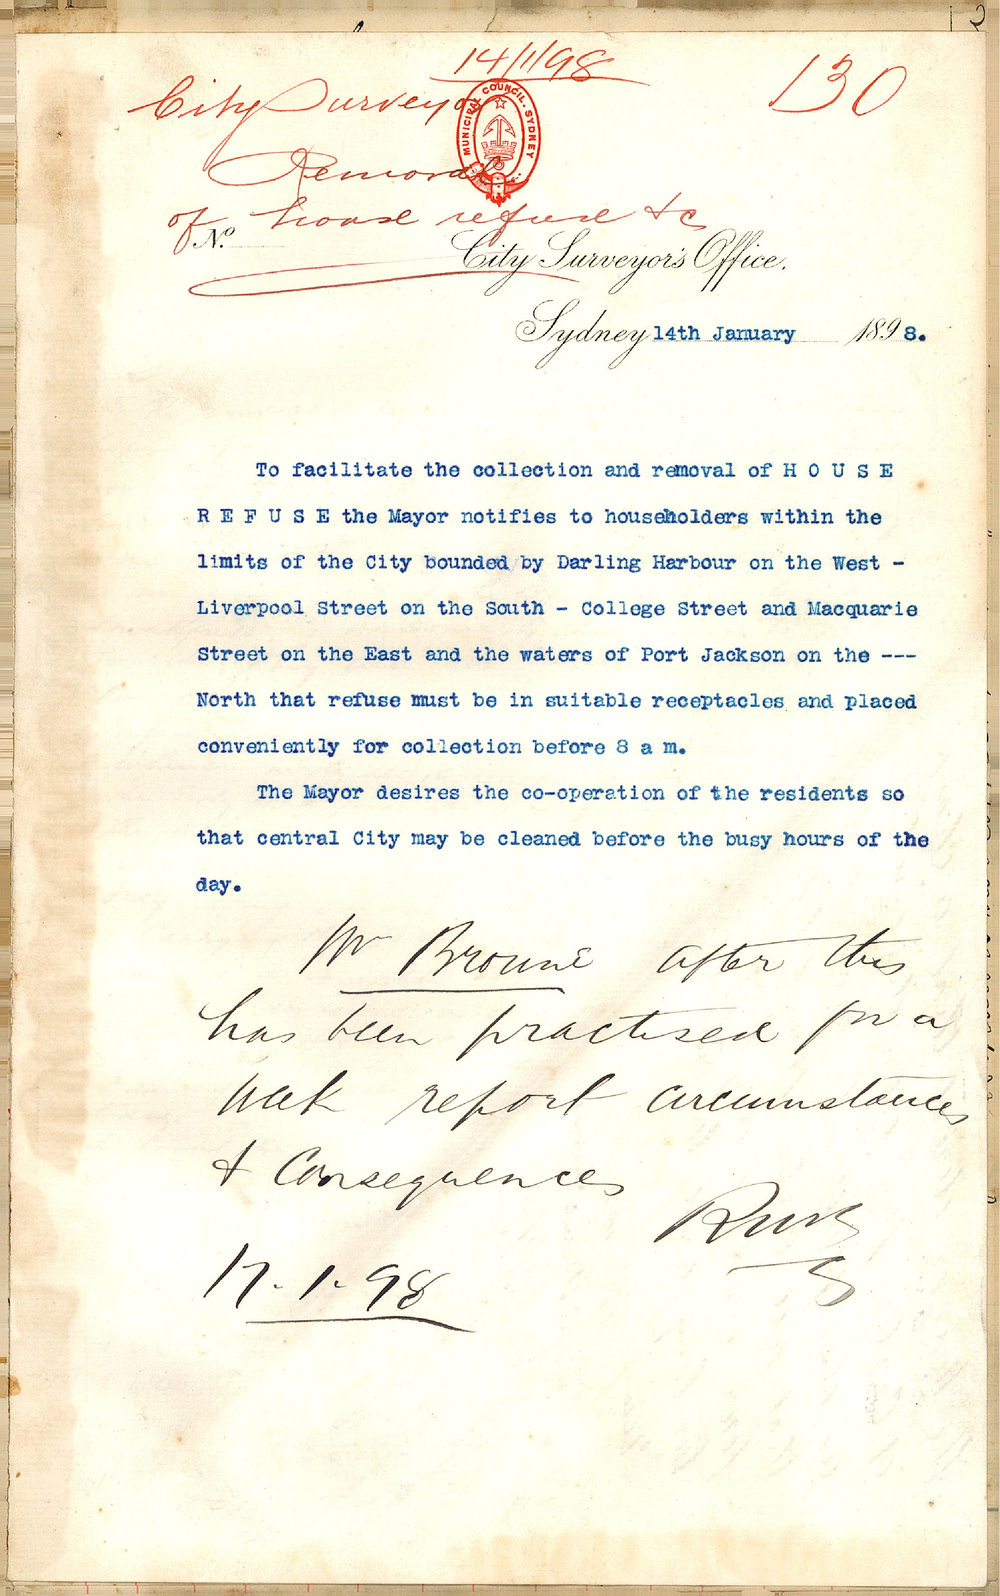 14/1/98
130
City Surveyor
MUNICIPAL COUNCIL. SYDNEY
Removal
of house refuse &c
No.
City Surveyor's Office.
Sydney 14th January 1898.
To facilitate the collection and removal of H O U S E
R E F U S E the Mayor notifies to householders within the
limits of the City bounded by Darling Harbour on the West -
Liverpool Street on the South - College Street and Macquarie
Street on the East and the waters of Port Jackson on the ---
North that refuse must be in suitable receptacles and placed
conveniently for collection before 8 a m.
The Mayor desires the co-operation of the residents so
that central City may be cleaned before the busy hours of the
day.
Mr Browne after this
has been practised for a
week report circumstances
& Consequences
17.1.98